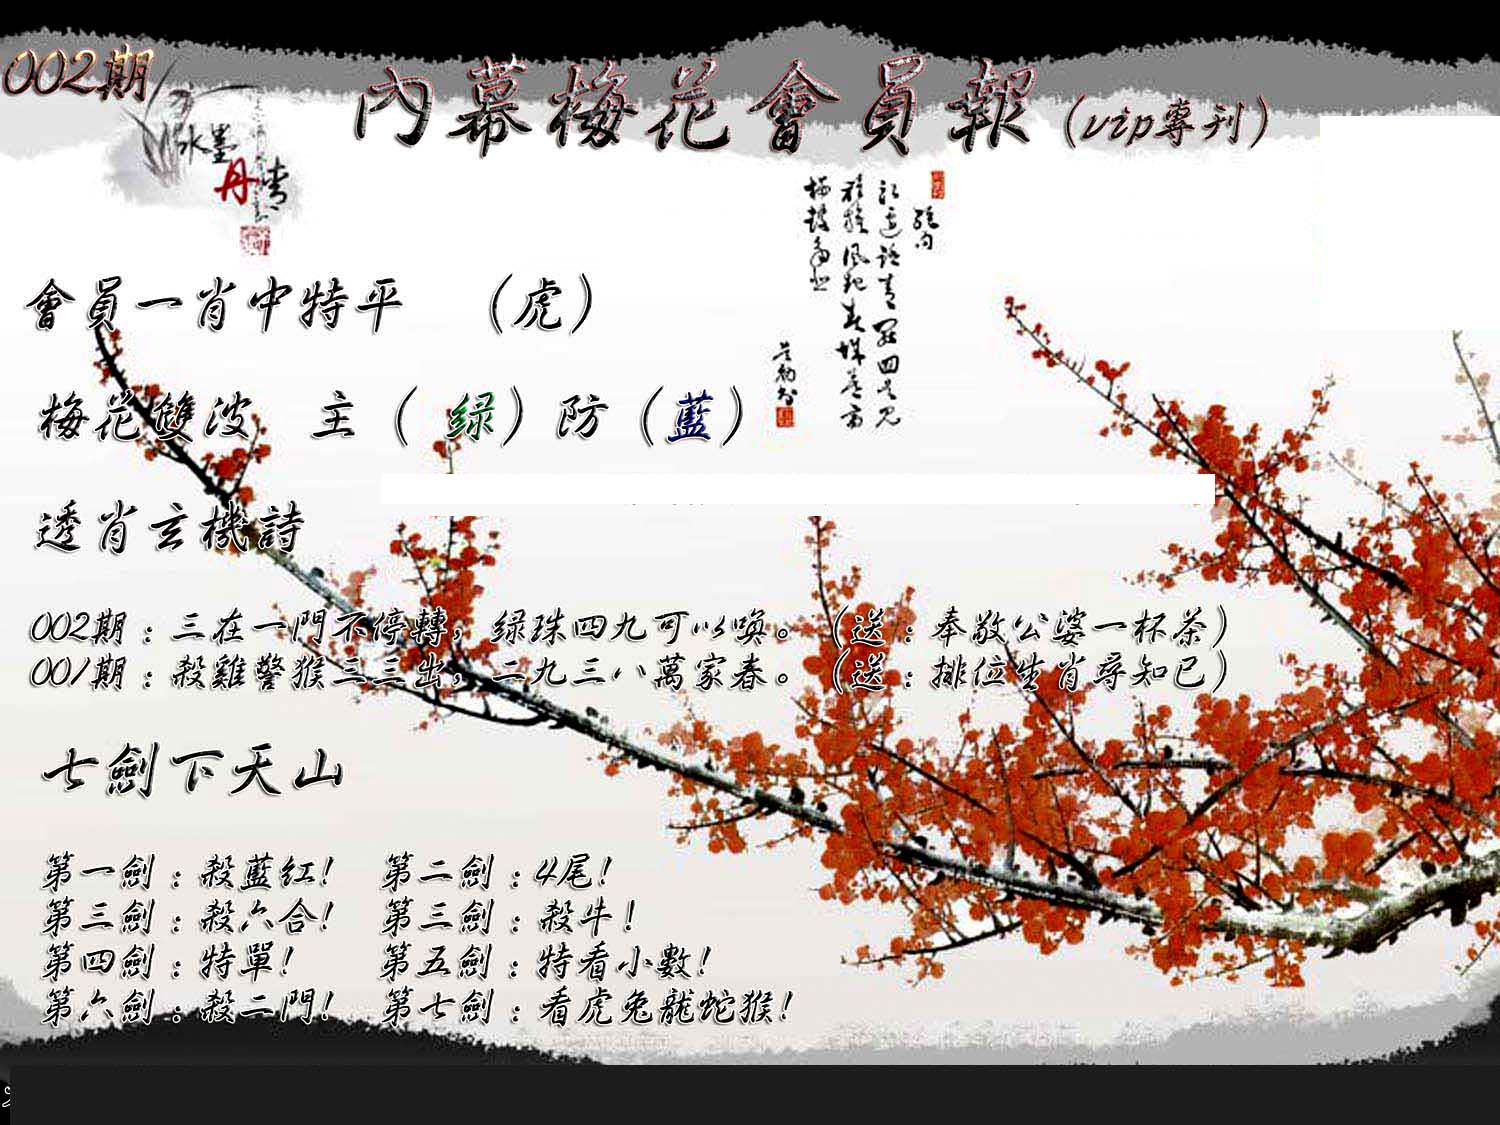 002期
內幕梅花會員報（vip專刊）
水墨
丹青
會員一肖中特平　（虎）
梅花雙波　主（绿）防（藍）
透肖玄機詩
002期：三在一門不停轉，绿珠四九可以喚。（送：奉敬公婆一杯茶）
001期：殺雞警猴三三出，二九三八萬家春。（送：排位生肖尋知已）
七劍下天山
第一劍：殺藍红！　第二劍：4尾！
第三劍：殺六合！　第三劍：殺牛！
第四劍：特單！　第五劍：特看小數！
第六劍：殺二門！　第七劍：看虎兔龍蛇猴！